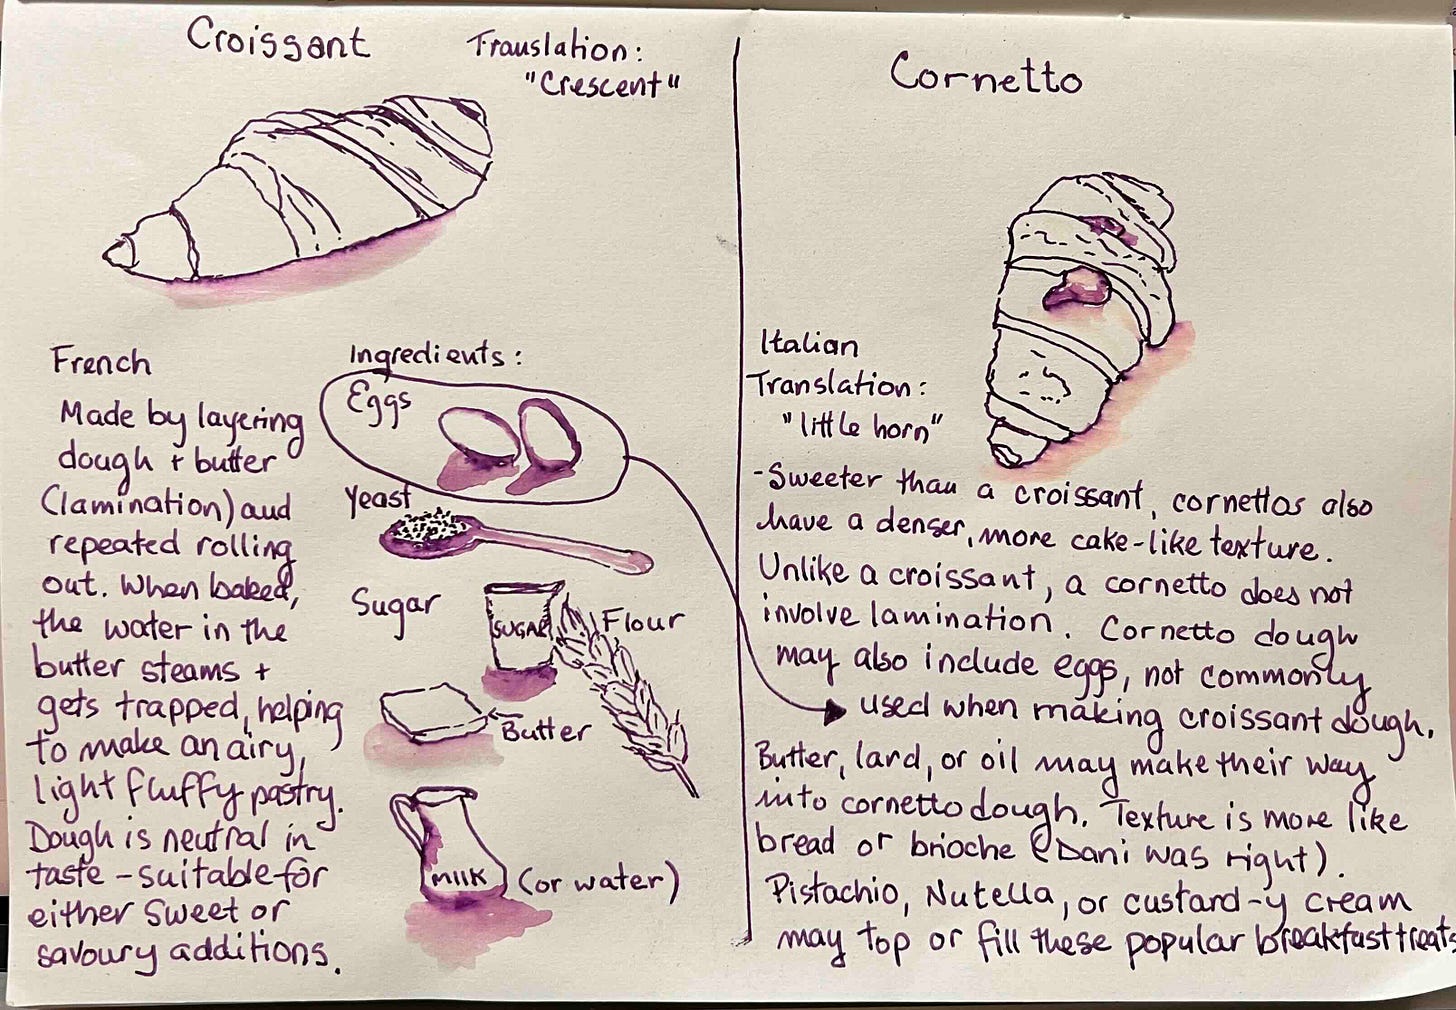 Croissant
Translation:
"Crescent"
French
Made by layering
dough + butter
(lamination) and
repeated rolling
out. When baked,
the water in the
butter steams +
gets trapped, helping
to make an airy,
light fluffy pastry.
Dough is neutral in
taste - suitable for
either sweet or
savoury additions.
Ingredients:
Eggs
Yeast
Sugar
SUGAR
Flour
Butter
MILK
(or water)
Cornetto
Italian
Translation:
"little horn"
-Sweeter than a croissant, cornettos also
have a denser, more cake-like texture.
Unlike a croissant, a cornetto does not
involve lamination. Cornetto dough
may also include eggs, not commonly
used when making croissant dough.
Butter, lard, or oil may make their way
into cornetto dough. Texture is more like
bread or brioche (Dani was right).
Pistachio, Nutella, or custard-y cream
may top or fill these popular breakfast treats